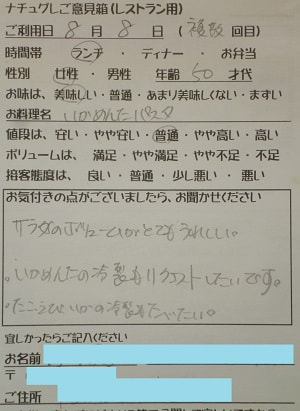 ナチュグレご意見箱(レストラン用)
ご利用日 8月8日(複数回目)
時間帯 ランチ・ディナー・お弁当
性別 女性・男性 年齢 50才代
お味は、美味しい・普通・あまり美味しくない・まずい
お料理名 いかめんたいパスタ
値段は、安い・やや安い・普通・やや高い・高い
ボリュームは、満足・やや満足・やや不足・不足
接客態度は、良い・普通・少し悪い・悪い
お気付きの点がございましたら、お聞かせください
サラダのボリュームがとてもうれしい。
。いかめんたの冷製もリクエストしたいです。
。たこえびいかの冷製もたべたい。
宜しかったらご記入ください
お名前
〒
ご住所